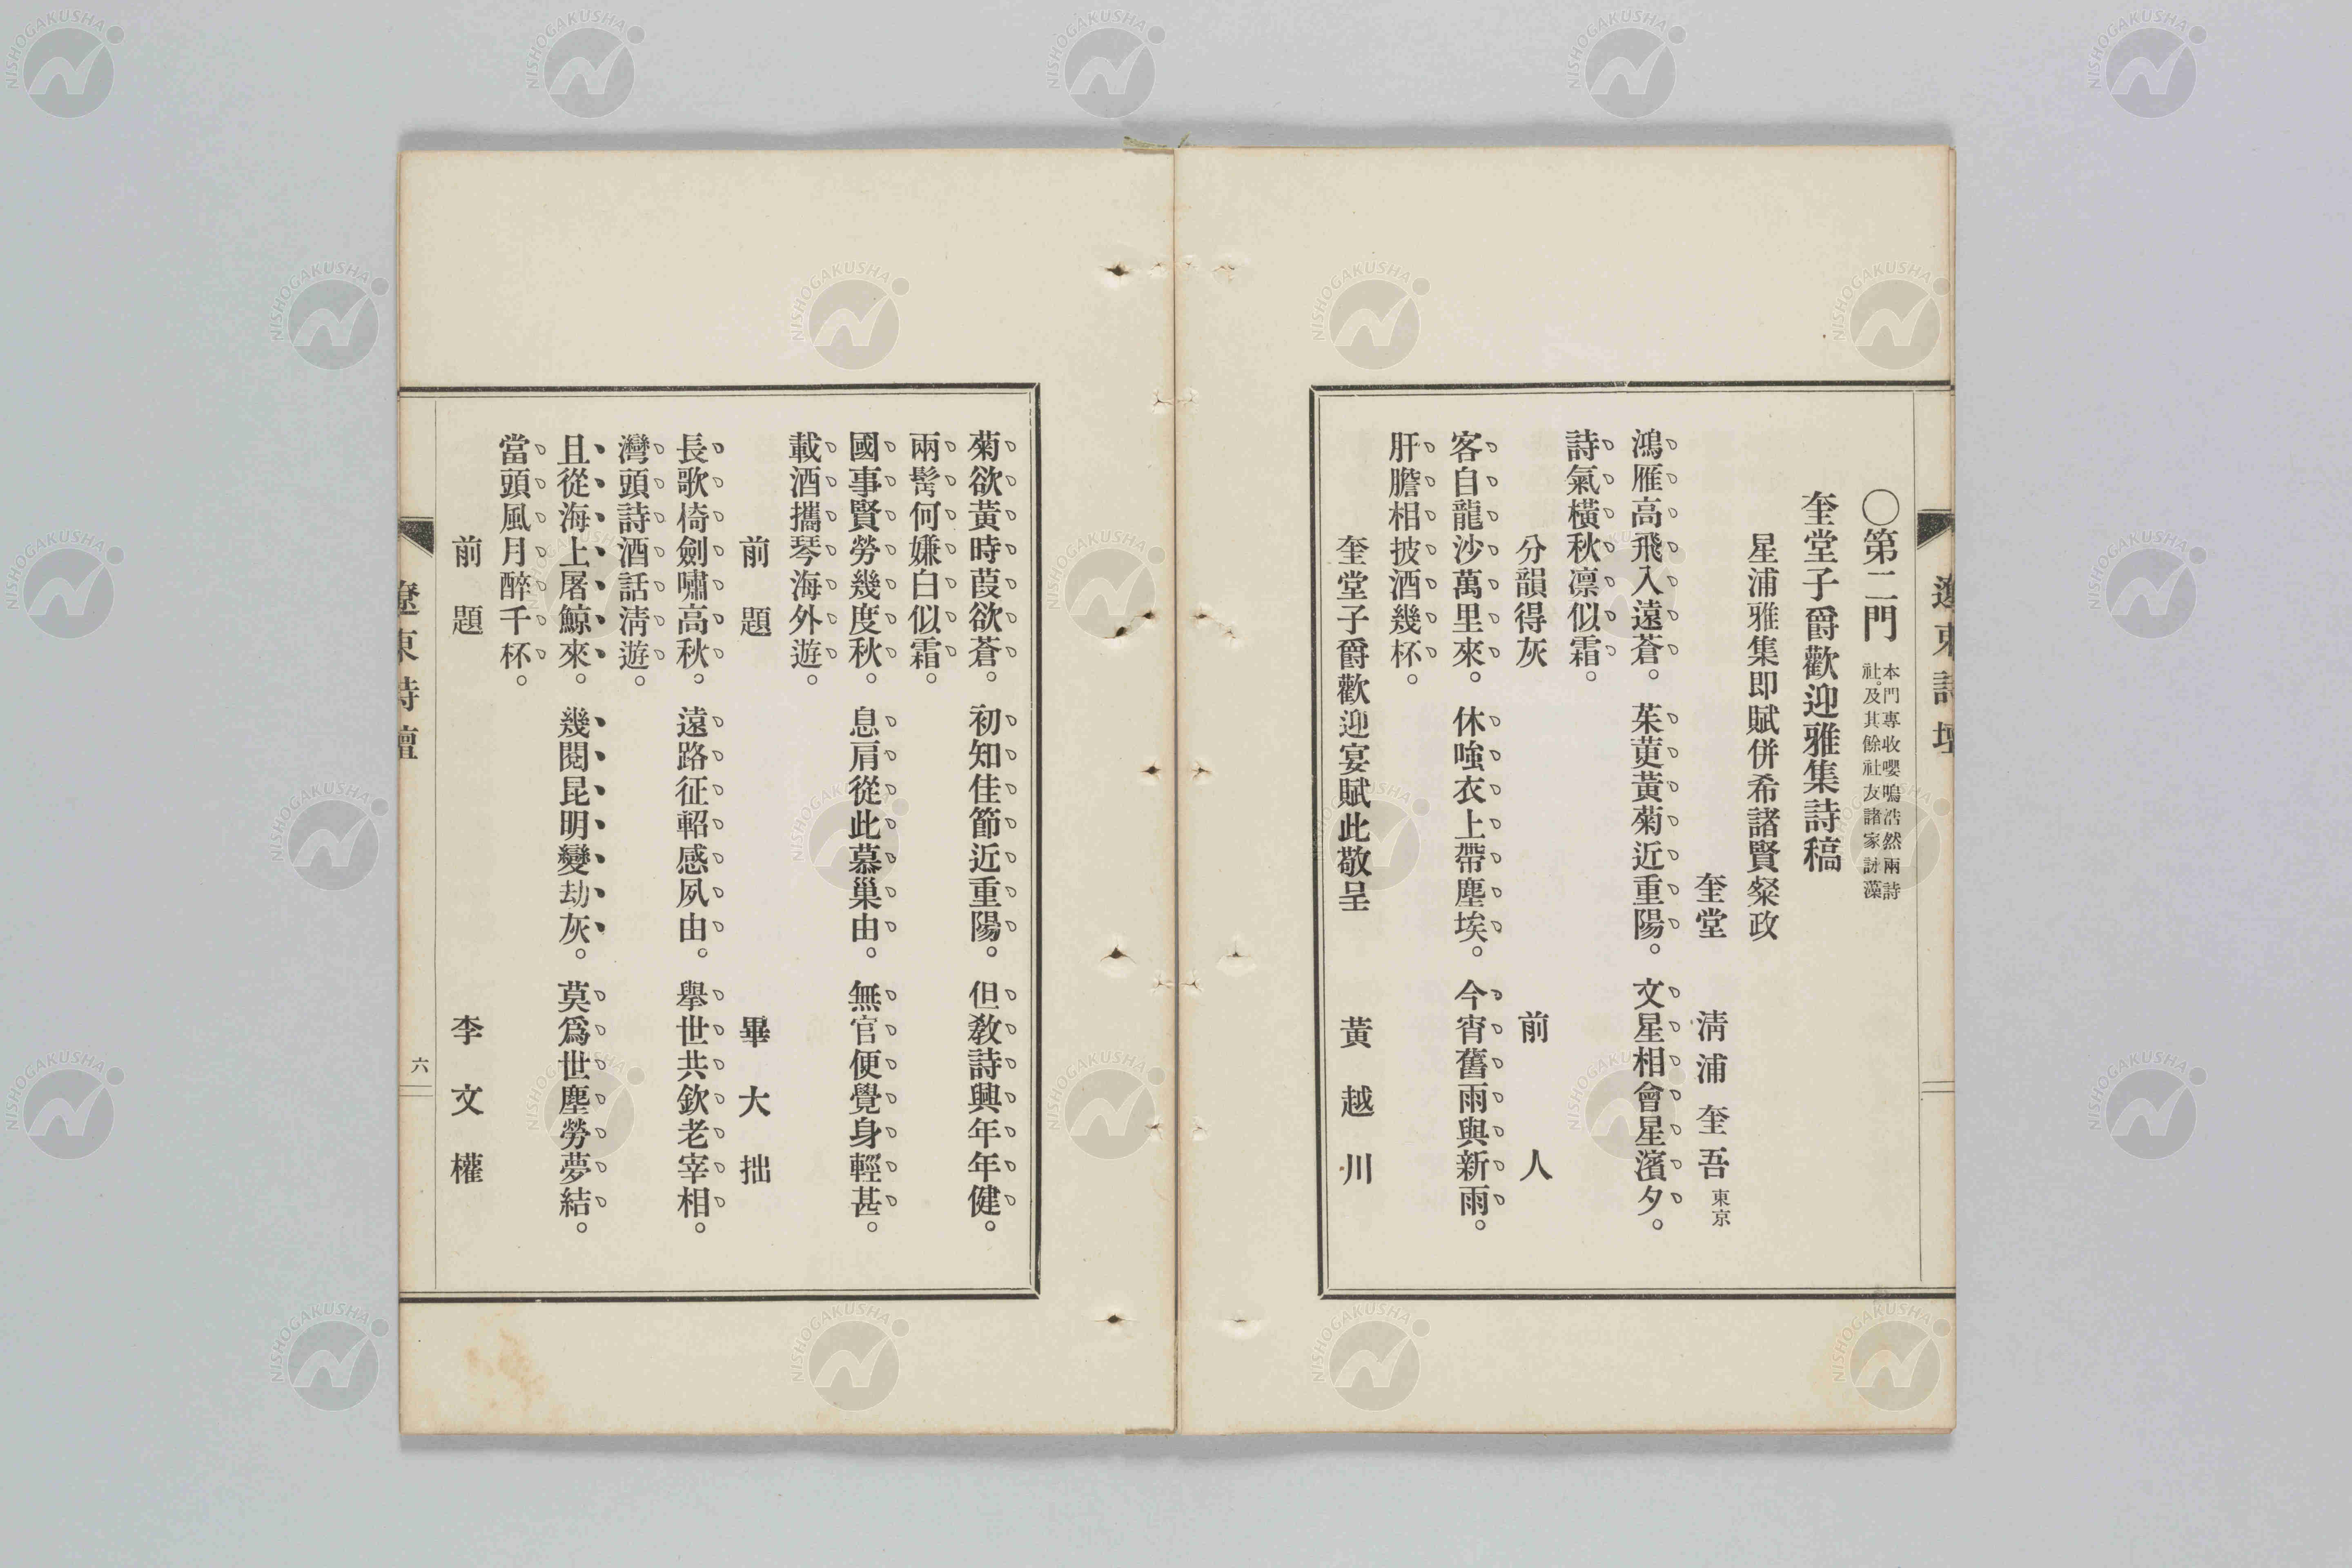 遼東詩壇
〇第二門 本門專收嚶鳴浩然兩詩
社。及其餘社友諸家詩藻
奎堂子爵歡迎雅集詩稿
星浦雅集即賦併希諸賢粲政
奎堂 淸浦奎吾 東京
鴻雁高飛入遠蒼。茱萸黃菊近重陽。文星相會星濱夕。
詩氣橫秋凛似霜。
分韻得灰 前人
客自龍沙萬里來。休嗤衣上帶塵埃。今宵舊雨與新雨。
肝膽相披酒幾杯。
奎堂子爵歡迎宴賦此敬呈 黃越川
菊欲黃時葭欲蒼。初知佳節近重陽。但敎詩興年年健。
兩髩何嫌白似霜。
國事賢勞幾度秋。息肩從此慕巢由。無官便覺身輕甚。
載酒攜琴海外遊。
前題 畢大拙
長歌倚劍嘯高秋。遠路征軺感夙由。擧世共欽老宰相。
灣頭詩酒話淸遊。
且從海上屠鯨來。幾閱昆明變劫灰。莫爲世塵勞夢結。
當頭風月醉千杯。
前題 李文權
遼東詩壇
六
NISHOGAKUSHA